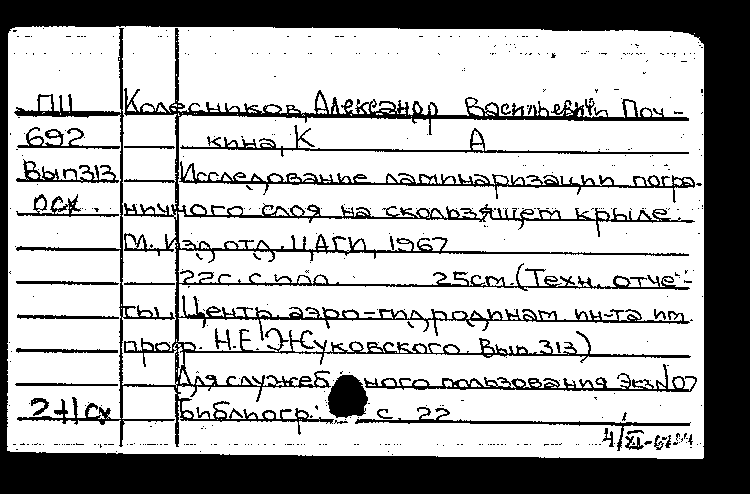 ПЦ Колесников, Александр Васильевич Поч-
692 кина, К А
Вып313 Исследование ламинаризации погра-
осх. ничного слоя на скользящем крыле.
М., Изд. отд. ЦАГИ, 1967
22с. с илл. 25см. (Техн. отче-
ты. Центр. аэро-гидродинам ин-та им.
проф. Н.Е. Жуковского. Вып. 313)
Для служебного пользования Экз№07
2+1сх Библиогр: с. 22
4/XI-67